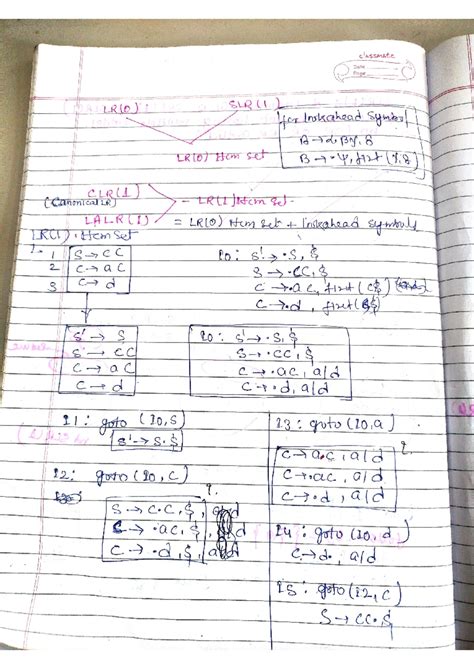 classmate
Date
Page
LR(0)
SLR(1)
LR(0) Item Set
for Lookahead Symbol
B → ψ, first
CLR(1)
(Canonical LR)
LALR(1)
= LR(1) Item Set
= LR(0) Item Set + Lookahead Symbols
LR(1) Item Set
1 S → CC
2 C → aC
3 C → d
I0: S' → .S, $
S → .CC, $
C → .aC, first(C$)
C → .d, first(C$)
S' → S
S' → CC
C → aC
C → d
I0: S' → .S, $
S → .CC, $
C → .aC, a/d
C → .d, a/d
I1: goto (I0, S)
S' → S.$
I2: goto (I0, C)
S → C.C, $
C → .aC, $
C → .d, $
I3: goto (I0, a)
C → a.C, a/d
C → .aC, a/d
C → .d, a/d
I4: goto (I0, d)
C → d., a/d
I5: goto (I2, C)
S → CC.$